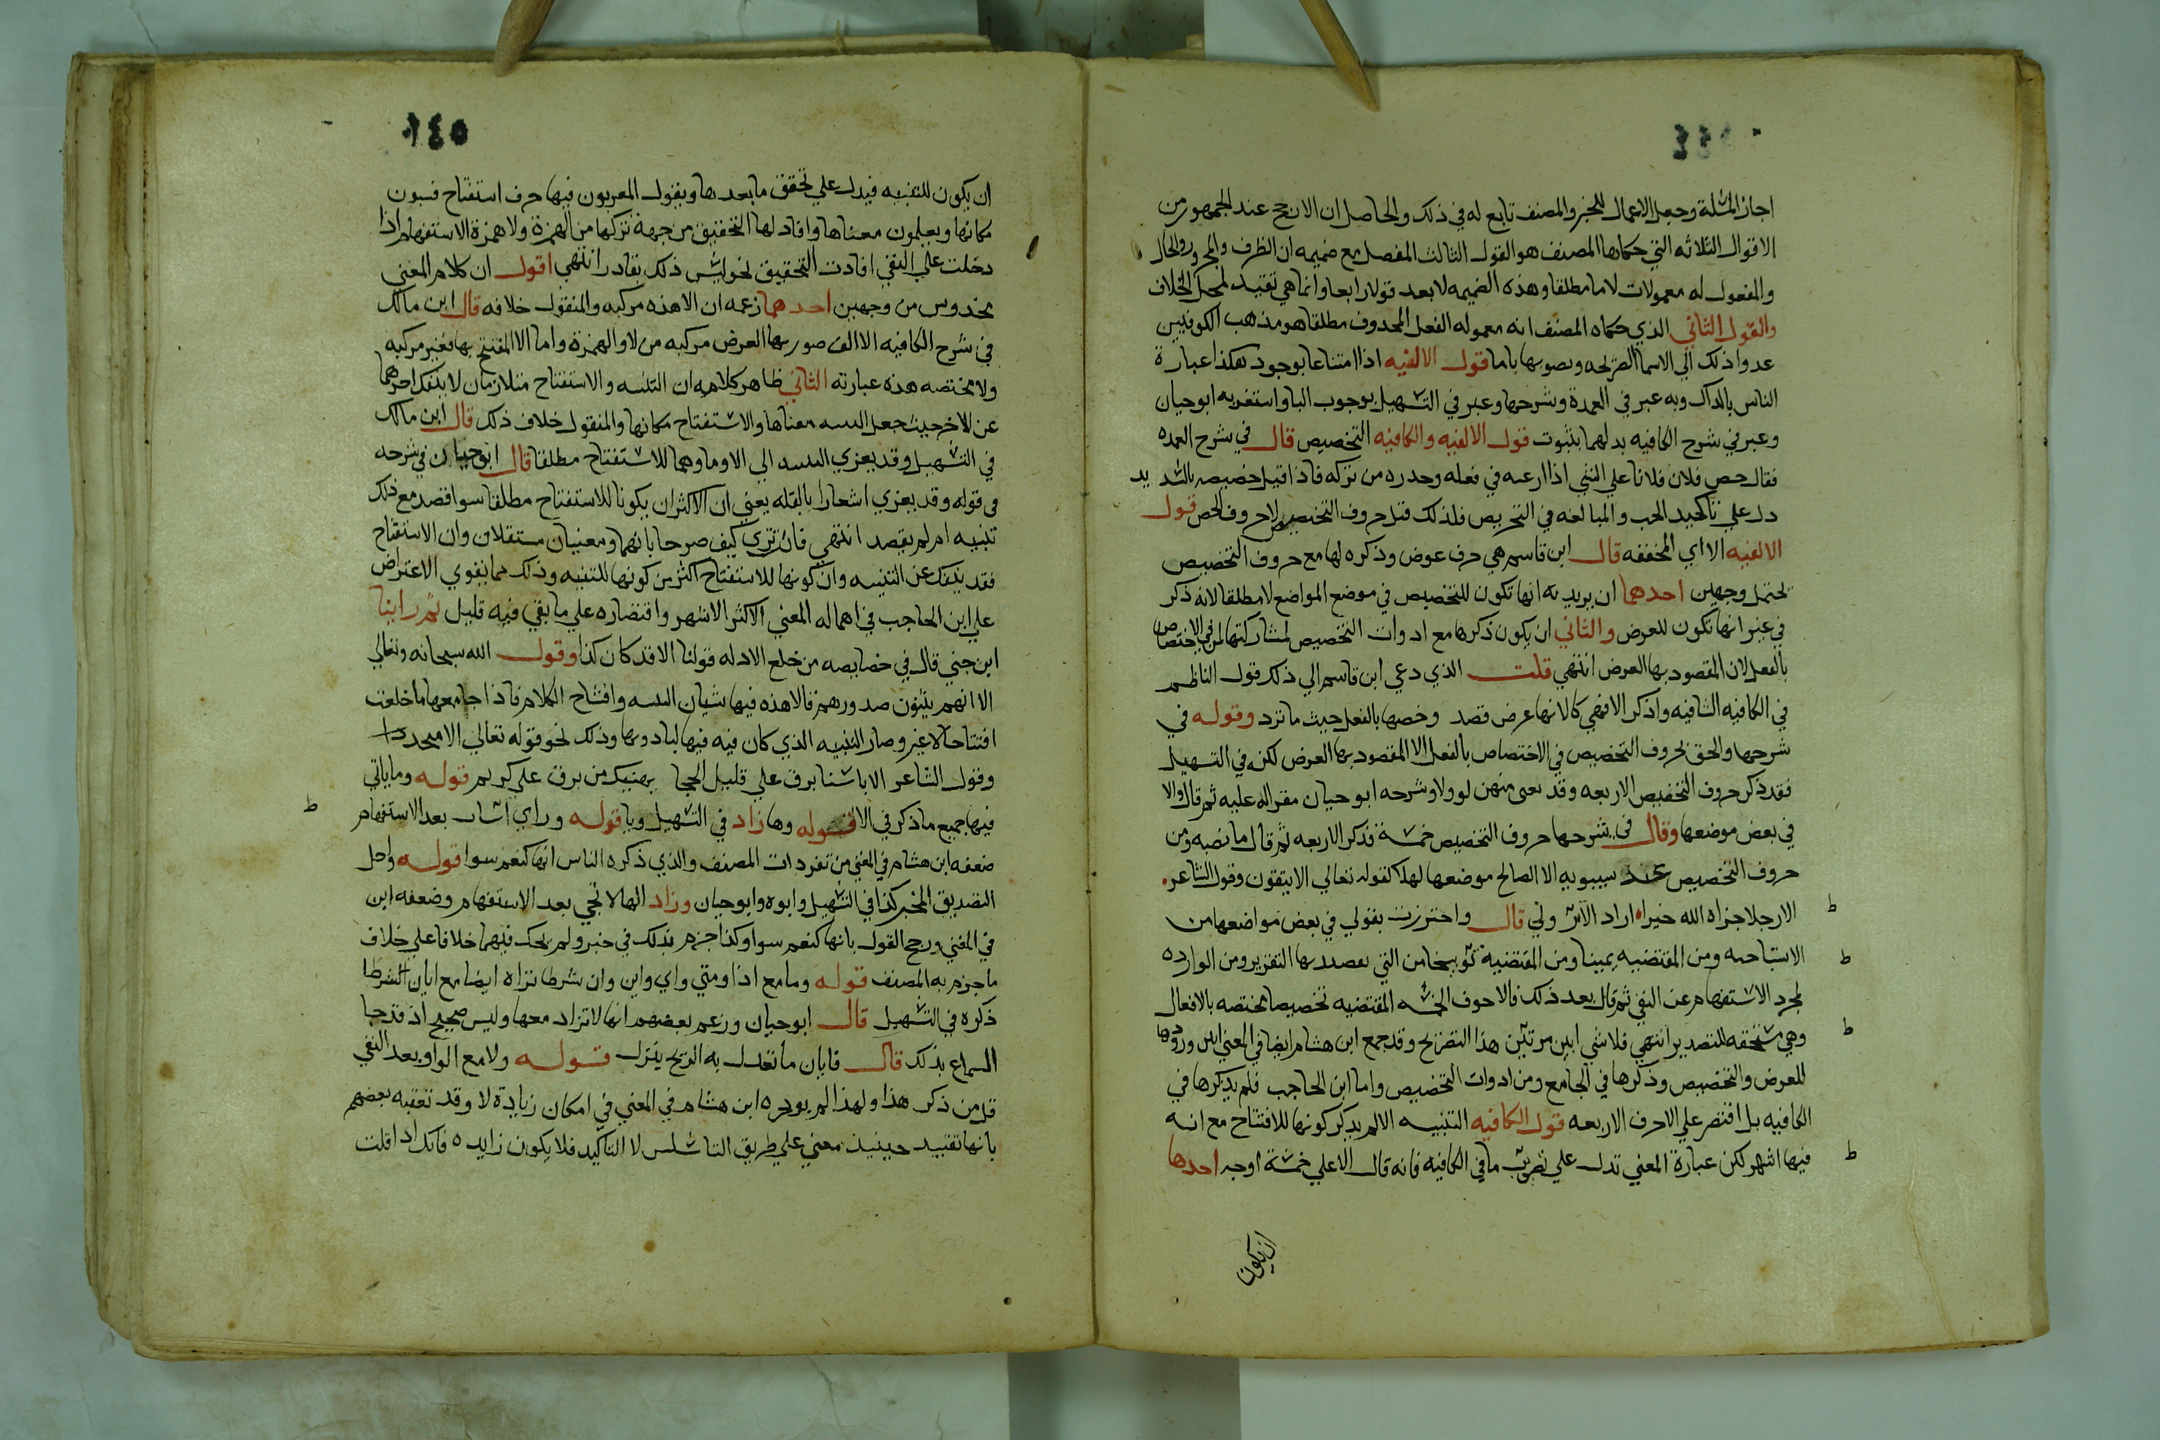 اجاز المسلة وجعل الاعمال للمجز والمصنف تابع له في ذلك والحاصل ان الارجح عند الجمهور من
الاقوال الثلاثه التي حكاها المصنف هو القول الثالث المفصل مع ضميمه ان الظرف والمجرور والحال
والمفعول له معمولات لاما مطلقا وهذه الضميمه لا بعد قولا رابعا وانما هي تقييد لمحل الخلاف
والقول الثاني الذي حكاه المصنف انه معموله الفعل المحدوف مطلقا هو مذهب الكوفيين
عدوا ذلك الي الاسما الصريحه ونصوبها باما قول الالفيه اذا امتناعا بوجود هكذا عبارة
الناس بالدال وبه عبر في العمدة وشرحها وعبر في التسهيل بوجوب البا واستغربه ابوحيان
وعبر في شرح الكافيه بدلهما بثبوت قول الالفيه والكافيه التخصيص قال في شرح العمده
فقال حص فلان فلانا علي الشي اذا رغبه في فعله وحدره من تركه فاذا قيل خصيصه بالتشديد
دل علي تاكيد الحب والمبالغه في التحريص فلذلك قيل حروف التخصيص لا حروف الحص قول
الالفيه الا اي المخففه قال ابن قاسم هي حرف عوض وذكره لها مع حروف التخصيص
يحتمل وجهين احدهما ان يريد به انها تكون للتخصيص في موضع المواضع لا مطلقا لانه ذكر
في عبر انها تكون للعرض والثاني ان يكون ذكرها مع ادوات التخصيص لمشاركتها لهن في الاختصاص
بالفعل لان المقصود بها العرض انتهي قلت الذي دعي ابن قاسم الي ذلك قول الناظم
في الكافيه الشافيه واذكر الافهي كالانها عرض قصد وخصها بالفعل حيث ما ترد وقوله في
شرحها والحق بحروف التخصيص في الاختصاص بالفعل الا المقصود بها العرض لكنه في التسهيل
فقد ذكر حروف التخصيص الاربعه وقد بعنى منهن لو ولا وشرحه ابوحيان مقرا له عليه ثم قال والا
في بعض موضعها وقال في شرحها حروف التخصيص خمسة فذكر الاربعه ثم قال ما نصه ومن
حروف التخصيص عند سيبويه الا الصالح موضعها لهلا كقوله تعالي الا يتقون وقول الشاعر
الا رجلا جزاه الله خيرا اراد الآتر ولي قال واحترزت بقولي في بعض مواضعها من
الاستباحه ومن المقتضيه يمينا ومن المقتضية توبيخا من التي بصدد بها التقرير ومن الوارده
لمجرد الاستفهام عن النفي ثم قال بعد ذلك فالاحرف الخمسه المقتضيه تخصيصا مختصه بالافعال
وهي مستحقه للتصدير انتهي فلا شي ابين من هذا التصريح وقد جمع ابن هشام ايضا في المغني بين ورودها
للعرض والتخصيص وذكرها في الجامع ومن ادوات التخصيص واما ابن الحاجب فلم يذكرها في
الكافيه بل اقتصر علي الاحرف الاربعه قول الكافيه التنبيه الا لم يذكر كونها للافتتاح مع انه
فيها اشهر لكن عبارة المغني تدل علي تصريب ما في الكافيه فانه قال الا علي خمسة اوجه احدها
ان يكون
١٤٥
ان يكون للتنبيه فيدل علي تحقق ما بعدها ويقول المعربون فيها حرف استفتاح فيبون
مكانها ويعلمون معناها وافاد لها التحقيق من جهة تركها من الهمزة ولا همزة الاستفهام اذا
دخلت علي النفي افادت التحقيق نحو اليس ذلك بقادر انتهي اقول ان كلام المغني
مخدوس من وجهين احدهما زعمه ان الا هذه مركبه والمنقول خلافه قال ابن مالك
في شرح الكافيه الا التي صور بها العرض مركبه من لا والهمزة واما الا المفتتح بها فغير مركبه
ولا مختصه هذه عبارته الثاني ظاهر كلامه ان التنبيه والاستفتاح متلازمان لا ينفك احدهما
عن الاخر حيث جعل التنبيه معناها والاستفتاح مكانها والمنقول خلاف ذلك قال ابن مالك
في التسهيل وقد يعزي التنبيه الي الا وما وهما للاستفتاح مطلقا قال ابوحيان في شرحه
في قوله وقد يعزي اشعارا بالقله يعني ان الاكثر ان يكونا للاستفتاح مطلقا سوا قصد مع ذلك
تنبيه ام لم يقصد انتهي فان تري كيف صرحا بانهما معنيان مستقلان وان الاستفتاح
فقد ينفك عن التنبيه وان كونها للاستفتاح اكثر من كونها للتنبيه وذلك مما يقوي الاعتراض
علي ابن الحاجب في اهماله المعني الاكثر الاشهر واقتصاره علي ما بقي فيه قليل ثم راينا
ابن جني قال في خصايصه من خلع الادله قولنا الا قد كان كذا وقول الله سبحانه وتعالي
الا انهم يثنون صدورهم فالا هذه فيها شيان التنبيه وافتتاح الكلام فاذا جامعها ما خلعت
افتتاحا لا غير وصار التنبيه الذي كان فيه فيها لبا دونها وذلك نحو قوله تعالي الا يسجدوا
وقول الشاعر الا يا سنا برق علي قلل الحما بهنيك من برق علي كريم قوله وما ياتي
فيها جميع ما ذكر في الا قوله وها زاد في التسهيل ويا قوله وراي اتبات بعد الاستفهام
ضعفه ابن هشام في المغني من تفردات المصنف والذي ذكره الناس انها كنعم سوا قوله واجل
التصديق المخبر كذا في التسهيل وابوه وابوحيان وزاد انها لا تجي بعد الاستفهام وضعفه ابن
في المغني ورجح القول بانها كنعم سوا وكذا جزم بذلك في خبر ولم يحك فيهما خلافا علي خلاف
ما جزم به المصنف قوله وما مع اذا ومتي واي واين وان شرطا نزاد ايضا مع ايان الشرطا
ذكره في التسهيل قال ابوحيان وزعم بعضهم انها لا تزاد معها وليس صحيح اذ قد جا
السماع بذلك قال فايان ما تعدل به الريح ينزل قوله ولا مع الواو بعد النفي
قل من ذكر هذا ولهذا لم يورده ابن هشام في المغني في امكان زيادة لا وقد تعقبه بعضهم
بانها تفييد حينيذ معني علي طريق التاسيس لا التاكيد فلا يكون زايد ه فانك اذا قلت